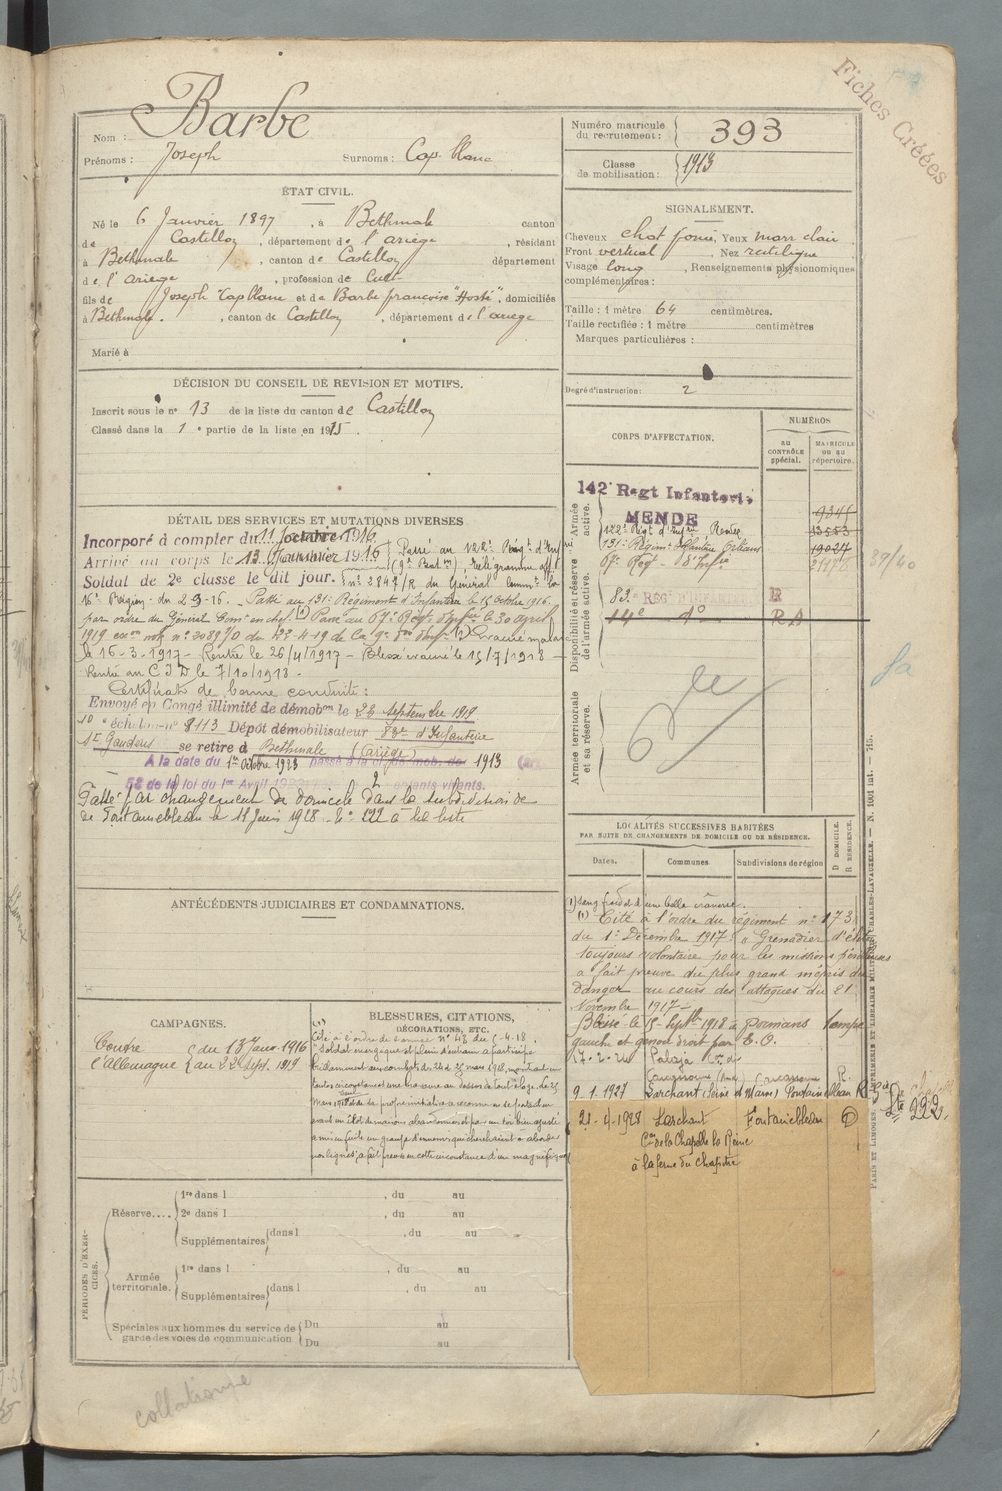 Fiches Créées
Nom : Barbe
Prénoms : Joseph Surnoms : Cap blanc
Numéro matricule du recrutement : 393
Classe de mobilisation : 1913
ÉTAT CIVIL.
Né le 6 Janvier 1897, à Bethmale canton
de Castillon, département de l'ariège, résidant
à Bethmale, canton de Castillon département
de l'ariège, profession de Cult
fils de Joseph Capblanc et de Barbe françoise "Hosté", domiciliés
à Bethmale, canton de Castillon, département de l'ariège
Marié à
SIGNALEMENT.
Cheveux chat foncé, Yeux marr clair
Front vertical, Nez rectiligne
Visage long, Renseignements physionomiques
complémentaires :
Taille : 1 mètre 64 centimètres.
Taille rectifiée : 1 mètre centimètres
Marques particulières :
Degré d'instruction : 2
DÉCISION DU CONSEIL DE REVISION ET MOTIFS.
Inscrit sous le n° 13 de la liste du canton de Castillon
Classé dans la 1e partie de la liste en 1915.
CORPS D'AFFECTATION.
NUMÉROS
AU CONTRÔLE spécial.
MATRICULE OU AU répertoire.
Armée active.
142e Regt Infanterie
MENDE
122e Régt d'Infrie Rodez 13553
131e Régimt Infanterie Orléans 19027
67e Regt d'Infie
Disponibilité et réserve de l'armée active.
83e REGt D'INFANTERIE R
14e do RA
Armée territoriale et sa réserve.
39/40
DÉTAIL DES SERVICES ET MUTATIONS DIVERSES
Incorporé à compter du 11 octobre 1916.
Arrivé au corps le 13 Janvier 1916
Soldat de 2e classe le dit jour.
Passé au 122e Régt d'Infrie
Télégramme offel
n° 2847/R du Général Commt la
16e Région du 2-9-16. Passé au 131e Régiment d'Infanterie le 15 Octobre 1916.
par ordre du Général Comt en chef. (1) Passé au 67e Régt d'Infrie le 30 avril
1919 n° 2089/0 du 22-4-19 de la 9e Don d'Inf. (2) Evacué malade
le 16-3-1917 - Rentré le 26/4/1917 - Blessé évacué le 15/7/1918 -
Rentré au C I D le 7/10/1918 -
Certificat de bonne conduite :
Envoyé en Congé illimité de démobon le 22 septembre 1919
10e échelon n° 8113 Dépôt démobilisateur 83e d'Infanterie
St Gaudens se retire à Bethmale (Ariège)
A la date du 1er Octobre 1923 passé à la classe mob. de 1913 (art.
58 de la loi du 1er Avril 1923 2 enfants vivants.
Passé par changement de domicile dans la subdivision de
de Fontainebleau le 11 Juin 1928. N° 122 à la liste
ANTÉCÉDENTS JUDICIAIRES ET CONDAMNATIONS.
LOCALITÉS SUCCESSIVES HABITÉES
PAR SUITE DE CHANGEMENTS DE DOMICILE OU DE RÉSIDENCE.
Dates. Communes. Subdivisions de région D DOMICILE. R RÉSIDENCE.
1) sang froid et d'une belle crânerie.
(1) Cité à l'ordre du régiment n° 173
du 1er Décembre 1917 : « Grenadier d'élite
toujours volontaire pour les missions périlleuses
a fait preuve du plus grand mépris du
danger au cours des attaques du 21
Novembre 1917 -
Blessé le 15 Septbre 1918 à Romans tempe
gauche et genou droit par E. O.
17-2-24 Palaja
9.1.1927 Larchant (Seine et Marne) Fontainebleau R
21-4-1928 Larchant Fontainebleau D
Con de la Chapelle la Reine
à la ferme du Chapitre
222
CAMPAGNES.
Contre l'Allemagne du 13 Janv. 1916 au 22 sept. 1919
BLESSURES, CITATIONS,
DÉCORATIONS, ETC.
Cité à l'ordre de l'armée n° 48 du 5-4-18.
"Soldat énergique et plein d'entrain a participé
brillamment aux combats des 24 et 25 mars 1918, montrant en
toutes circonstances une bravoure au dessus de tout éloge. Le 25
mars 1918 de sa propre initiative
PÉRIODES D'EXERCICES.
Réserve.... 1re dans l , du au
2e dans l , du au
Supplémentaires dans l , du au
Armée territoriale. 1re dans l , du au
Supplémentaires dans l , du au
Spéciales aux hommes du service de garde des voies de communication Du au
Du au
PARIS ET LIMOGES. IMPRIMERIE ET LIBRAIRIE MILITAIRES CHARLES-LAVAUZELLE. — N. 1001 int. — 715.
collationné